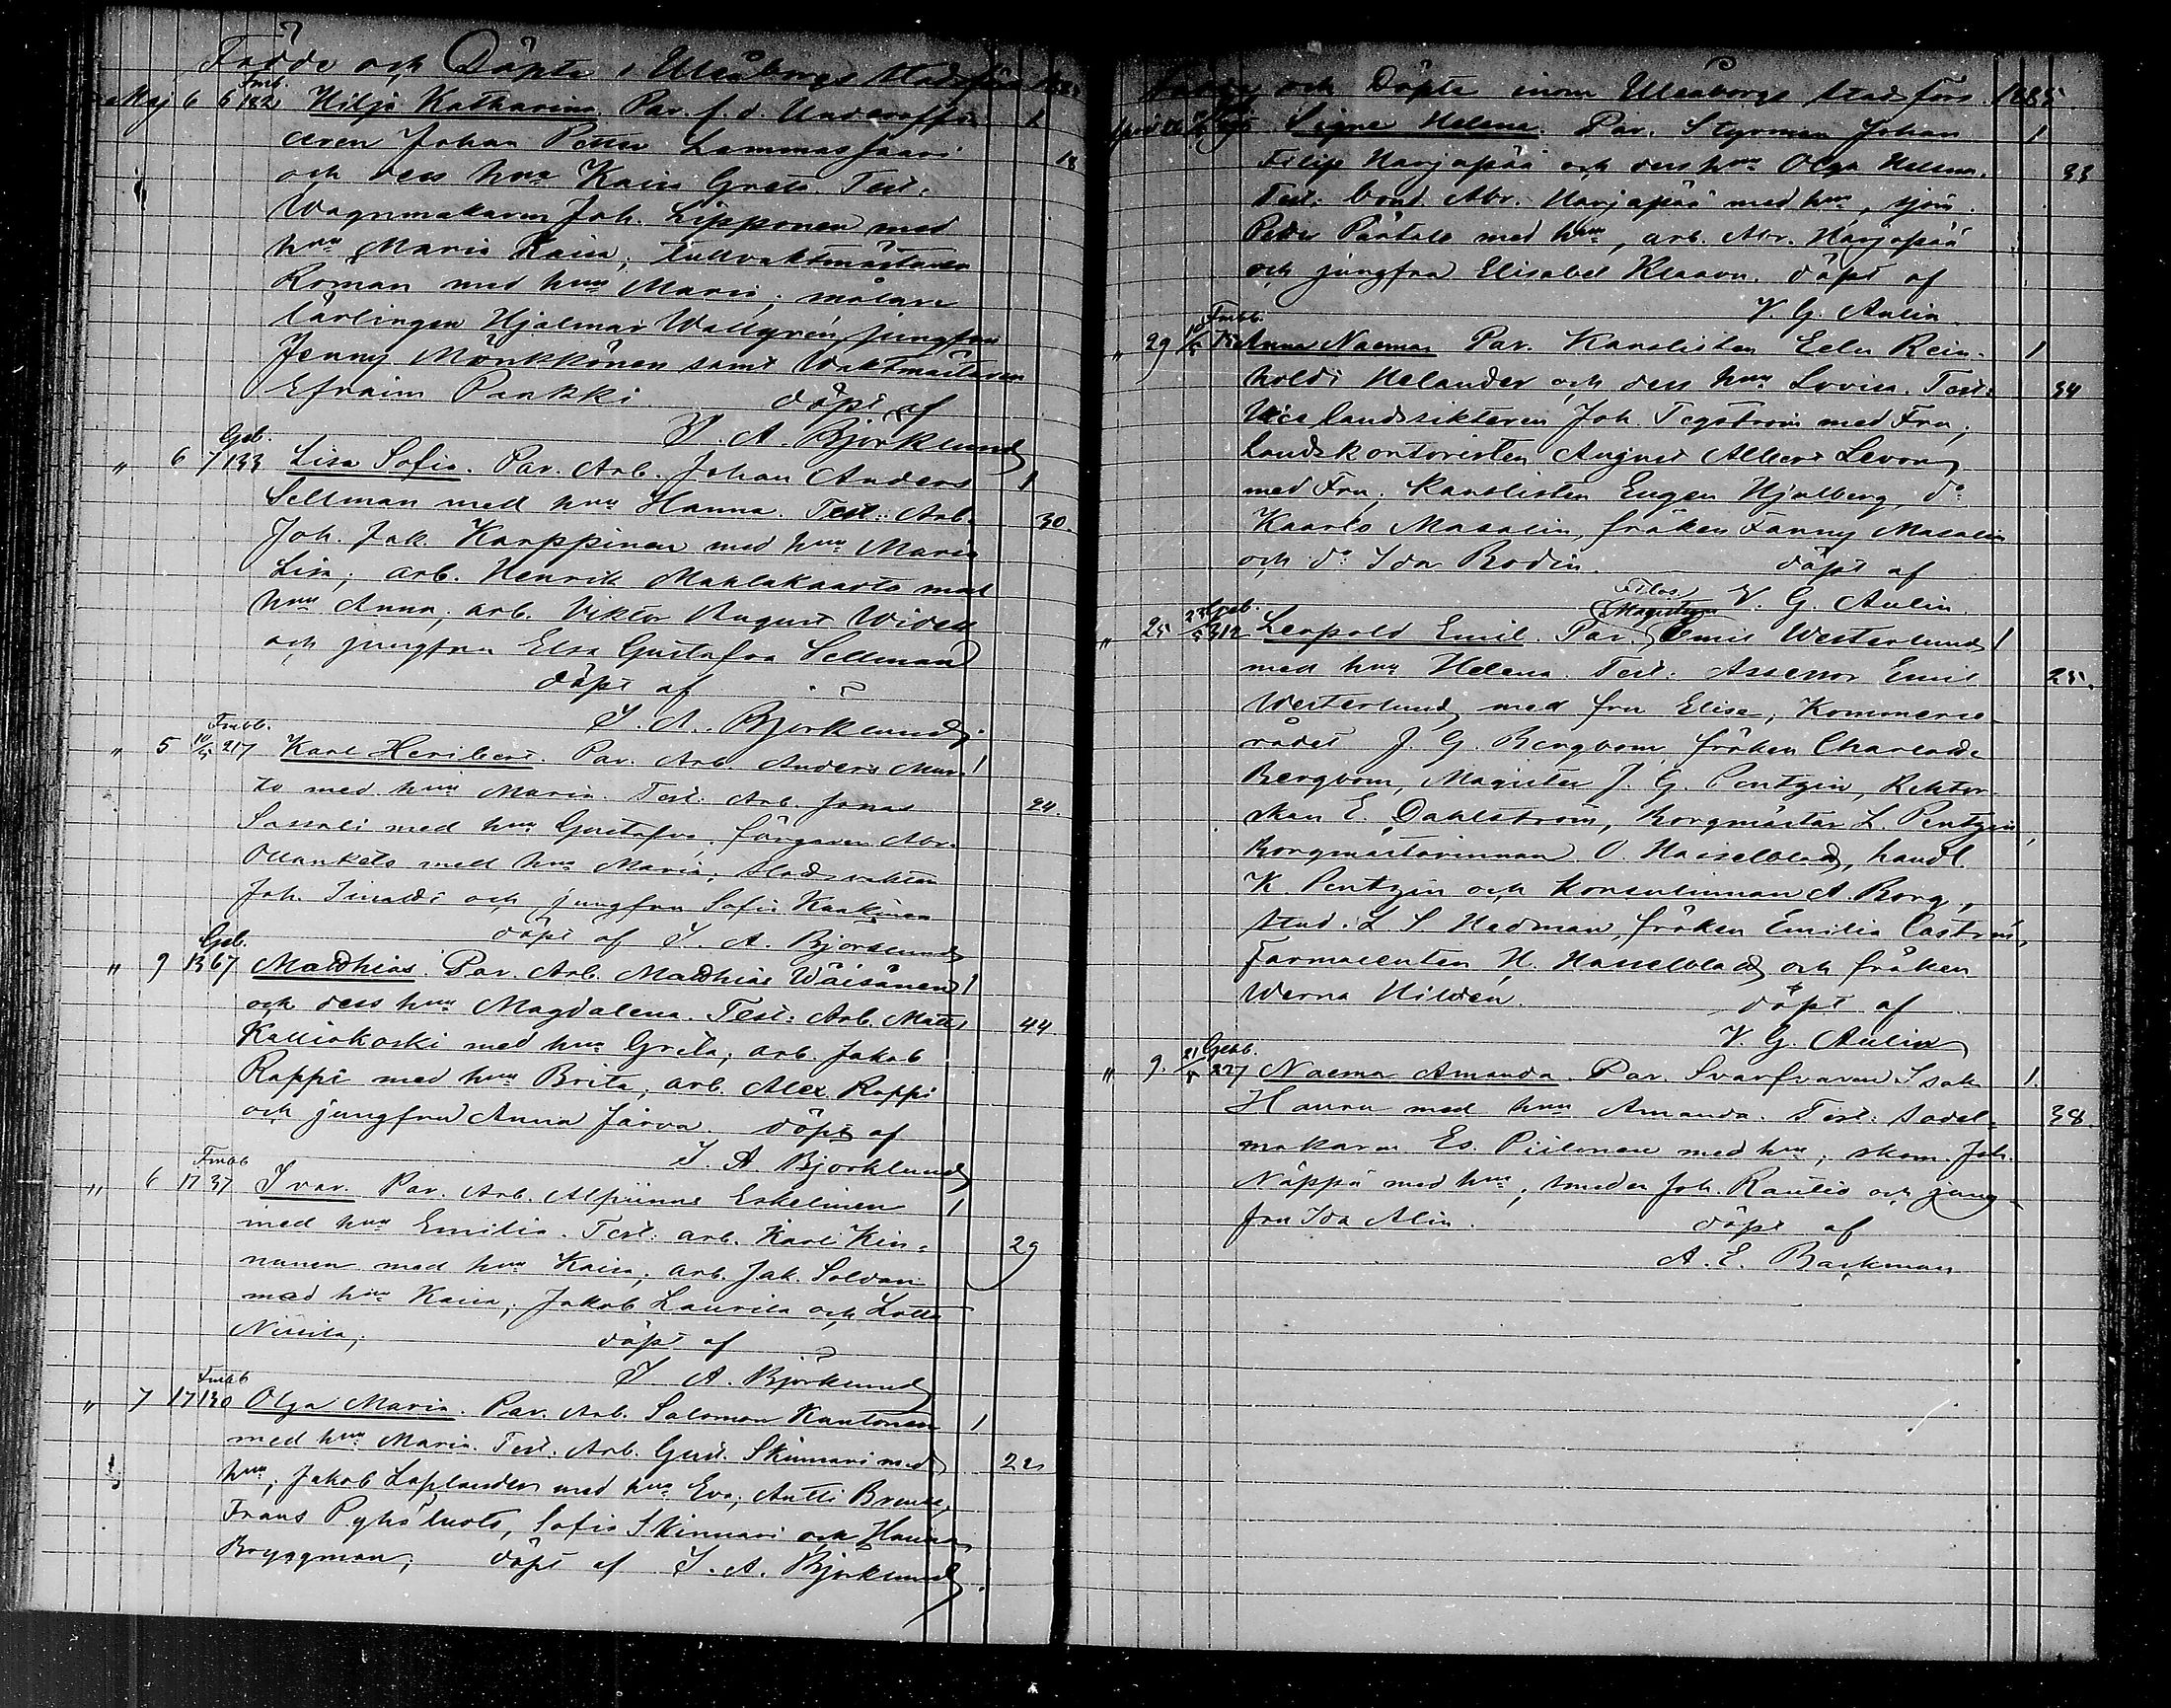 Födde och Döpte i Uleåborgs stadsförs. 1885
Fmb.
Maj 6 6 182 Hilja Katharina Par. f. d. Underoffi- 1
ceren Johan Petter Lammassaari 18
och dess hru Kaisa Greta. Test.
Wagnmakaren Joh. Lipponen med
hru Maria Kaisa; tullvaktmästaren
Roman med hru Maria; målare
lärlingen Hjalmar Wallgrén, jungfru
Jenny Mönkkönen samt Waktmästaren
Efraim Pankki döpt af
I. A. Björklund
Geb.
" 6 7 133 Lisa Sofia. Par. Arb. Johan Anders 1
Sellman med hru Hanna. Test: Arb. 30
Joh. Jak. Karppinen med hru Maria
Lisa; arb. Henrik Mahlakaarto med
hru Anna; arb. Viktor August Widell
och jungfru Elsa Gustafva Sellman
döpt af
I. A. Björklund
Fmbb.
" 5 10/5 217 Karl Heribert. Par. Arb. Anders Mur- 1
to med hru Maria. Test: Arb. Jonas 24.
Sassali med hru Gustafva; färgaren Abr.
med hru Maria; stadsvakten
Joh. och jungfru Sofia Kaakinen
döpt af I. A. Björklund
Geb.
" 9 13 67 Matthias. Par. Arb. Matthias Wäisänen 1
och dess hru Magdalena. Test: Arb. Matts 44
Kalliokoski med hru Greta; arb. Jakob
Rappi med hru Brita, arb. Alex. Rappi
och jungfru Anna Järva. döpt af
I. A. Björklund
Fmbb
" 6 17 37 Ivar. Par. Arb. Alpiinus Eskelinen 1
med hru Emilia. Test: arb. Karl Kin- 29
nunen med hru Kaisa; arb. Jak. Soldan
med hru Kaisa; Jakob Laurila och Lotta
Niilila; döpt af
I. A. Björklund
Fmbb
" 7 17 130 Olga Maria. Par. Arb. Salomon Kautonen 1
med hru Maria. Test. Arb. Gust. Skinnari med 22
hru; Jakob Laplander med hru Eva; Antti
Frans Pyhäluoto, Sofia Skinnari och Hanna
Bryggman; döpt af I. A. Björklund.
Födde och Döpte inom Uleåborgs stadsförs. 1885
April Signe Helena. Par. Styrman Johan 1
Filip Harjapää och dess hru Olga Helena. 33
Test: bond. Abr. Harjapää med hru, sjöm.
Peter med hru, arb. Abr. Harjapää
och jungfru Elisabet döpt af
V. G. Aulin.
Fmbb.
" 29 10/5 Anna Naemas Par. Kanslisten Eelu Rein- 1
hold Helander och dess hru Lovisa. Test: 34
Vice landssekteren Joh. Tegström med Fru;
landskontoristen August Albert Levon
med Fru, kanslisten Eugen Hjelberg, do
Kaarlo Masalin, fröken Fanny Masalin
och do Ida Bodin. döpt af
Filos. V. G. Aulin.
Geb. Magistern
" 25 23/5 312 Leopold Emil. Par. Emil Westerlund 1
med hru Helena. Test: Assessor Emil 25.
Westerlund med fru Elise, Kommerse-
rådet J. G. Bergbom, fröken Charlotte
Bergbom, Magister J. G. Pentzin, Rektor-
skan E. Dahlström, Borgmästar L. Pentzin,
Borgmästarinnan O. Hasselblad, handl.
K. Pentzin och Konsulinnan A. Borg,
stud. L. S Hedman, fröken Emilia Castrén,
Farmaceuten H. Hasselblad och fröken
Werna Hildén. döpt af
V. G. Aulin
Gebb.
" 9. 21/5 227 Naema Amanda. Par. Svarfvaren Isak 1.
Hauru med hru Amanda. Test: sadel- 38.
makaren Es. Piilonen med hru; skom. Joh.
Näppä med hru; smeden Joh. Rautio och jung-
fru Ida Alin. döpt af
A. E. Backman